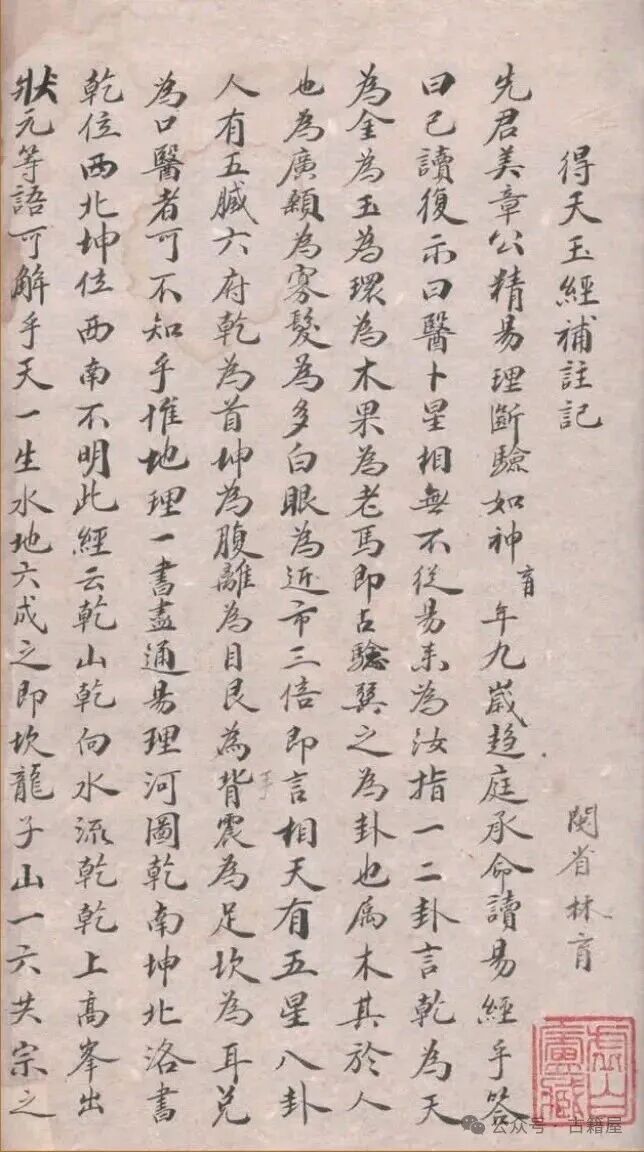 得天玉經補註記
閩省林育
先君美章公精易理斷驗如神育年九歲趋庭承命讀易經乎答
曰已讀復示曰醫卜星相無不從易来為汝指一二卦言乾為天
為金為玉為環為木果為老馬即占驗巽之為卦也属木其於人
也為廣顙為寡髮為多白眼為近市三倍即言相天有五星八卦
人有五臓六府乾為首坤為腹離為目艮為背震為足坎為耳兑
為口醫者可不知乎惟地理一書盡通易理河圖乾南坤北洛書
乾位西北坤位西南不明此經云乾山乾向水流乾乾上高峯出
狀元等語可解乎天一生水地六成之即坎龍子山一六共宗之
虛白廬藏
公众号 · 古籍屋